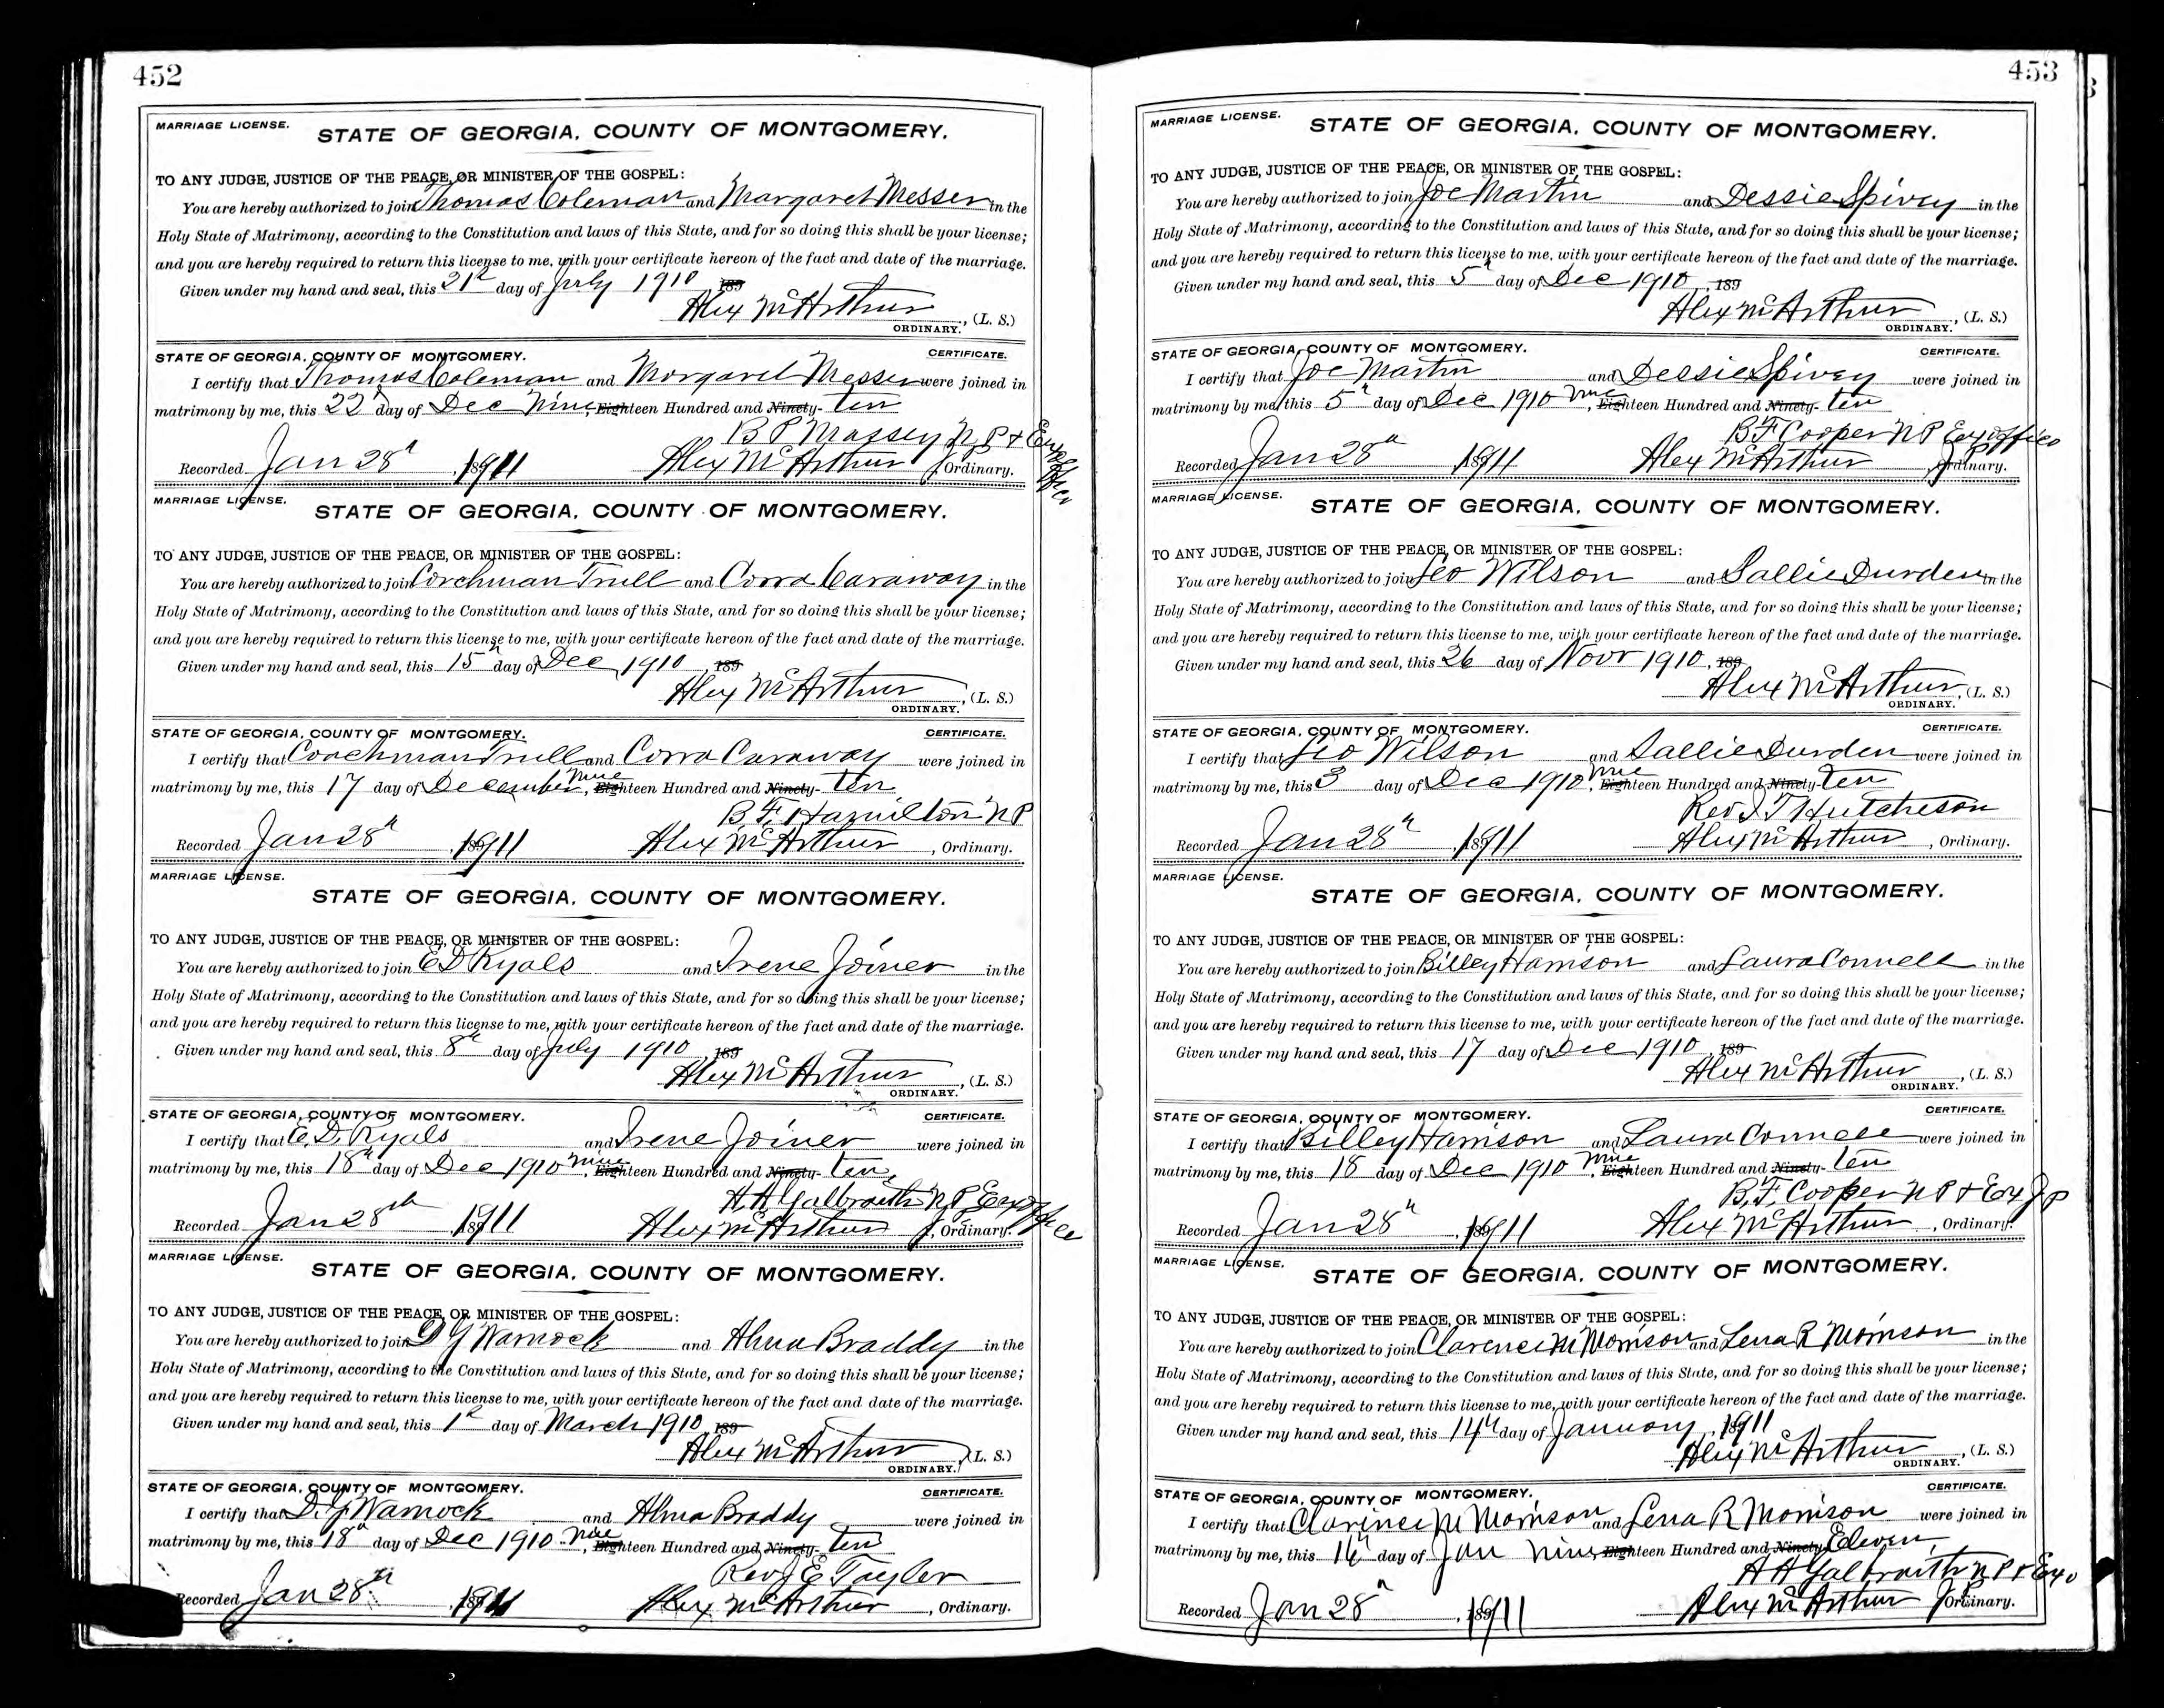 452
MARRIAGE LICENSE.
STATE OF GEORGIA, COUNTY OF MONTGOMERY.
TO ANY JUDGE, JUSTICE OF THE PEACE, OR MINISTER OF THE GOSPEL:
You are hereby authorized to join Thomas Coleman and Margaret Messer in the
Holy State of Matrimony, according to the Constitution and laws of this State, and for so doing this shall be your license;
and you are hereby required to return this license to me, with your certificate hereon of the fact and date of the marriage.
Given under my hand and seal, this 21st day of July 1910, 189
Alex McArthur, (L. S.)
ORDINARY.
STATE OF GEORGIA, COUNTY OF MONTGOMERY. CERTIFICATE.
I certify that Thomas Coleman and Morgaret Messer were joined in
matrimony by me, this 22d day of Dec Nine, Eighteen Hundred and Ninety- Ten
B P Massey N P & Exofficer
Recorded Jan 28th, 1911 Alex McArthur J P, Ordinary.
MARRIAGE LICENSE.
STATE OF GEORGIA, COUNTY OF MONTGOMERY.
TO ANY JUDGE, JUSTICE OF THE PEACE, OR MINISTER OF THE GOSPEL:
You are hereby authorized to join Corchman Trull and Corra Caraway in the
Holy State of Matrimony, according to the Constitution and laws of this State, and for so doing this shall be your license;
and you are hereby required to return this license to me, with your certificate hereon of the fact and date of the marriage.
Given under my hand and seal, this 15th day of Dec 1910, 189
Alex McArthur, (L. S.)
ORDINARY.
STATE OF GEORGIA, COUNTY OF MONTGOMERY. CERTIFICATE.
I certify that Coachman Trull and Corra Caraway were joined in
matrimony by me, this 17 day of December Nine, Eighteen Hundred and Ninety- Ten
B. F. Hamilton N P
Recorded Jan 28th, 1911 Alex McArthur, Ordinary.
MARRIAGE LICENSE.
STATE OF GEORGIA, COUNTY OF MONTGOMERY.
TO ANY JUDGE, JUSTICE OF THE PEACE, OR MINISTER OF THE GOSPEL:
You are hereby authorized to join E D Ryals and Irene Joiner in the
Holy State of Matrimony, according to the Constitution and laws of this State, and for so doing this shall be your license;
and you are hereby required to return this license to me, with your certificate hereon of the fact and date of the marriage.
Given under my hand and seal, this 8th day of July 1910, 189
Alex McArthur, (L. S.)
ORDINARY.
STATE OF GEORGIA, COUNTY OF MONTGOMERY. CERTIFICATE.
I certify that E. D. Ryals and Irene Joiner were joined in
matrimony by me, this 18th day of Dec 1910 nine, Eighteen Hundred and Ninety- ten,
A A Galbraith N P Exofficer
Recorded Jan 28th, 1911 Alex McArthur J P, Ordinary.
MARRIAGE LICENSE.
STATE OF GEORGIA, COUNTY OF MONTGOMERY.
TO ANY JUDGE, JUSTICE OF THE PEACE, OR MINISTER OF THE GOSPEL:
You are hereby authorized to join D J Warnock and Alma Braddy in the
Holy State of Matrimony, according to the Constitution and laws of this State, and for so doing this shall be your license;
and you are hereby required to return this license to me, with your certificate hereon of the fact and date of the marriage.
Given under my hand and seal, this 1st day of March 1910, 189
Alex McArthur, (L. S.)
ORDINARY.
STATE OF GEORGIA, COUNTY OF MONTGOMERY. CERTIFICATE.
I certify that D. J. Warnock and Alma Braddy were joined in
matrimony by me, this 18th day of Dec 1910 Nine, Eighteen Hundred and Ninety- Ten
Rev J E Tayler
Recorded Jan 28th, 1911 Alex McArthur, Ordinary.
453
MARRIAGE LICENSE.
STATE OF GEORGIA, COUNTY OF MONTGOMERY.
TO ANY JUDGE, JUSTICE OF THE PEACE, OR MINISTER OF THE GOSPEL:
You are hereby authorized to join Joe Martin and Dessie Spivey in the
Holy State of Matrimony, according to the Constitution and laws of this State, and for so doing this shall be your license;
and you are hereby required to return this license to me, with your certificate hereon of the fact and date of the marriage.
Given under my hand and seal, this 5th day of Dec 1910, 189
Alex McArthur, (L. S.)
ORDINARY.
STATE OF GEORGIA, COUNTY OF MONTGOMERY. CERTIFICATE.
I certify that Joe Martin and Dessie Spivey were joined in
matrimony by me, this 5th day of Dec 1910 nine, Eighteen Hundred and Ninety- ten
B. F. Cooper N P Exofficeo
Recorded Jan 28th, 1911 Alex McArthur J P, Ordinary.
MARRIAGE LICENSE.
STATE OF GEORGIA, COUNTY OF MONTGOMERY.
TO ANY JUDGE, JUSTICE OF THE PEACE, OR MINISTER OF THE GOSPEL:
You are hereby authorized to join Geo Wilson and Sallie Durden in the
Holy State of Matrimony, according to the Constitution and laws of this State, and for so doing this shall be your license;
and you are hereby required to return this license to me, with your certificate hereon of the fact and date of the marriage.
Given under my hand and seal, this 26 day of Novr 1910, 189
Alex McArthur, (L. S.)
ORDINARY.
STATE OF GEORGIA, COUNTY OF MONTGOMERY. CERTIFICATE.
I certify that Geo Wilson and Sallie Durden were joined in
matrimony by me, this 3 day of Dec 1910 nine, Eighteen Hundred and Ninety- Ten
Rev J T Hutcheson
Recorded Jan 28th, 1911 Alex McArthur, Ordinary.
MARRIAGE LICENSE.
STATE OF GEORGIA, COUNTY OF MONTGOMERY.
TO ANY JUDGE, JUSTICE OF THE PEACE, OR MINISTER OF THE GOSPEL:
You are hereby authorized to join Billey Harrison and Laura Connell in the
Holy State of Matrimony, according to the Constitution and laws of this State, and for so doing this shall be your license;
and you are hereby required to return this license to me, with your certificate hereon of the fact and date of the marriage.
Given under my hand and seal, this 17 day of Dec 1910, 189
Alex McArthur, (L. S.)
ORDINARY.
STATE OF GEORGIA, COUNTY OF MONTGOMERY. CERTIFICATE.
I certify that Billey Harrison and Laura Connell were joined in
matrimony by me, this 18 day of Dec 1910 nine, Eighteen Hundred and Ninety- ten
B. F. Cooper N P & Exo J P
Recorded Jan 28th, 1911 Alex McArthur, Ordinary.
MARRIAGE LICENSE.
STATE OF GEORGIA, COUNTY OF MONTGOMERY.
TO ANY JUDGE, JUSTICE OF THE PEACE, OR MINISTER OF THE GOSPEL:
You are hereby authorized to join Clarence M Morrison and Lena R Morrison in the
Holy State of Matrimony, according to the Constitution and laws of this State, and for so doing this shall be your license;
and you are hereby required to return this license to me, with your certificate hereon of the fact and date of the marriage.
Given under my hand and seal, this 14th day of January, 1911
Alex McArthur, (L. S.)
ORDINARY.
STATE OF GEORGIA, COUNTY OF MONTGOMERY. CERTIFICATE.
I certify that Clarence M Morrison and Lena R Morrison were joined in
matrimony by me, this day of Jan nine Eighteen Hundred and Ninety Eleven,
A A Galbraith N P & Exo
Recorded Jan 28th, 1911 Alex McArthur J P Ordinary.